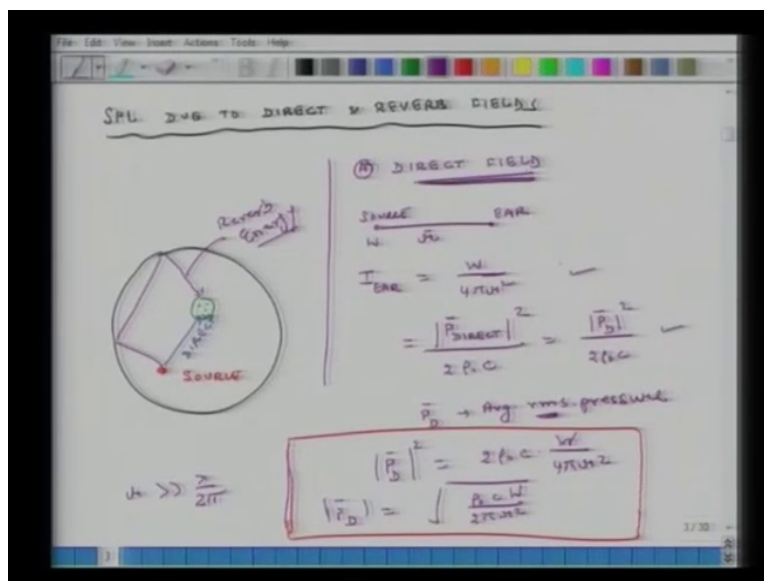 File Edit View Insert Actions Tools Help
SPL DUE TO DIRECT & REVERB FIELDS
Reverb
Energy
DIRECT
SOURCE
r >> λ/2π
Ⓐ DIRECT FIELD
SOURCE EAR
W r
I_EAR = W/4πr²
= |P̄_DIRECT|²/2ρ₀C = |P̄_D|²/2ρ₀C
P̄_D → Avg rms pressure
|P̄_D|² = 2ρ₀C · W/4πr²
|P̄_D| = √(ρ₀CW/2πr²)
3/30
3